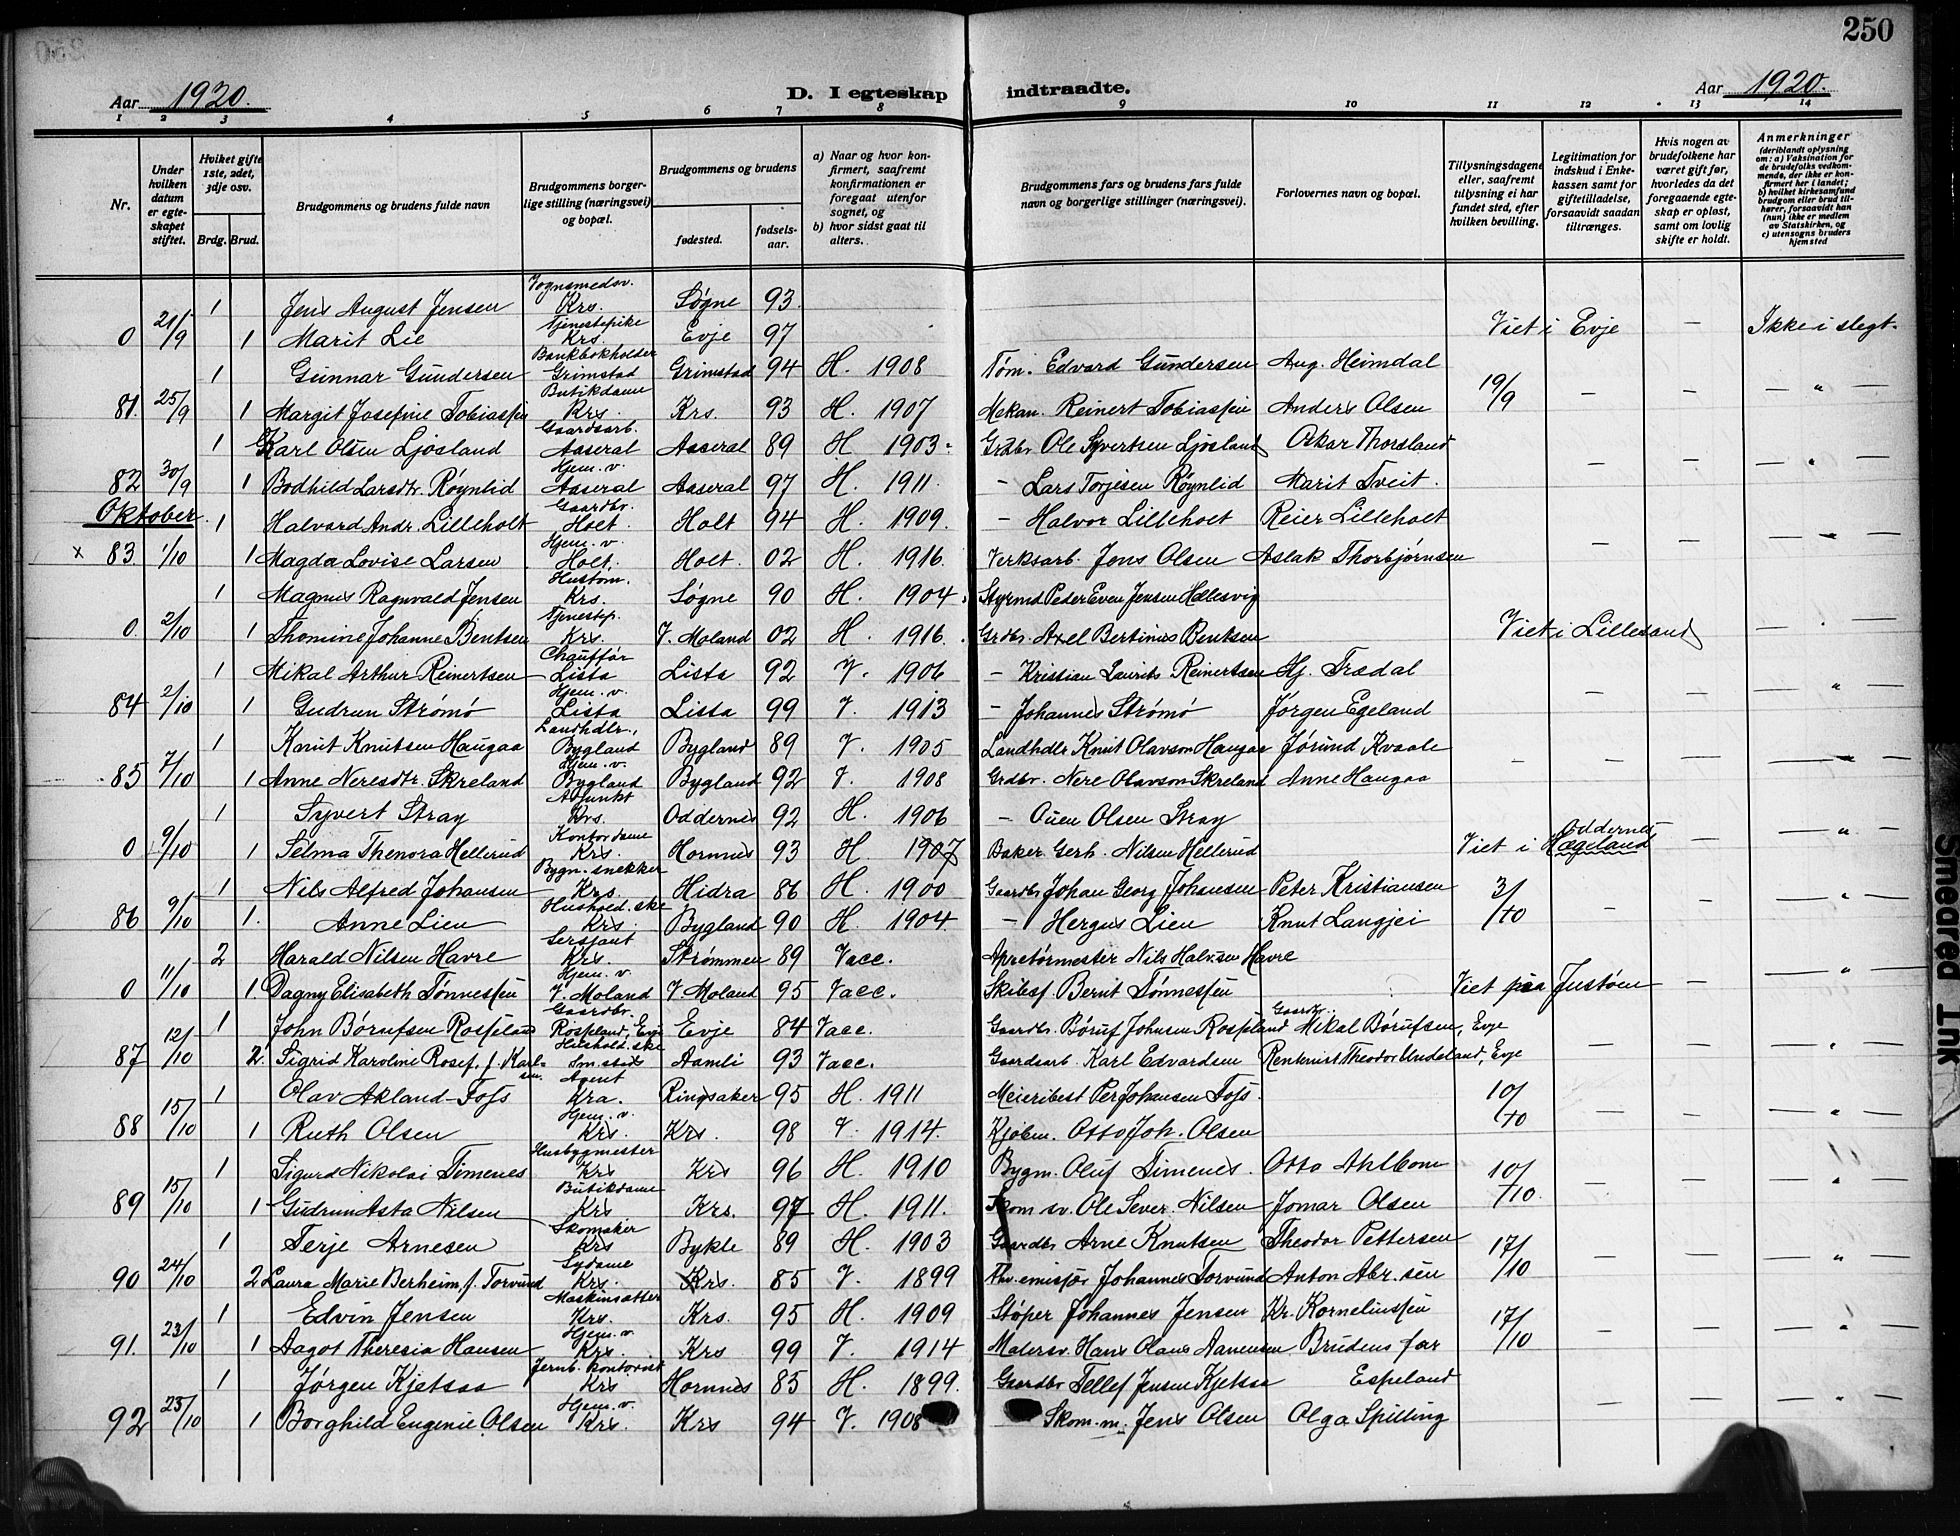 250
Aar 1920. D. I egteskap indtraadte. Aar 1920.
1 2 3 4 5 6 7 8 9 10 11 12 13 14
Nr.
Under hvilken datum er egteskapet stiftet.
Hviket gifte 1ste, 2det, 3dje osv.
Brdg. Brud.
Brudgommens og brudens fulde navn
Brudgommens borgerlige stilling (næringsvei) og bopæl.
Brudgommens og brudens
fødested. fødselsaar.
a) Naar og hvor konfirmert, saafremt konfirmationen er foregaat utenfor sognet, og
b) hvor sidst gaat til alters.
Brudgommens fars og brudens fars fulde navn og borgerlige stillinger (næringsvei).
Forlovernes navn og bopæl.
Tillysningsdagene eller, saafremt tillysning ei har fundet sted, efter hvilken bevilling.
Legitimation for indskud i Enkekassen samt for giftetilladelse, forsaavidt saadan tiltrænges.
Hvis nogen av brudefolkene har været gift før, hvorledes da det foregaaende egteskap er opløst, samt om lovlig skifte er holdt.
Anmerkninger (deriblandt oplysning om: a) Vaksination for de brudefolks vedkommende, der ikke er konfirmert her i landet; b) hvilket kirkesamfund brudgom eller brud tilhører, forsaavidt han (hun) ikke er medlem av Statskirken, og c) utensogns bruders hjemsted
1 Jens August Jensen Vognsmedsv. Krs. Søgne 93.
0 21/9 1 Marit Lie Tjenestepike Krs. Evje 97 Viet i Evje — Ikke i slegt.
1 Gunnar Gundersen Bankbokholder Grimstad Grimstad 94 H. 1908 Tøm. Edvard Gundersen Aug. Heimdal
81. 25/9 1 Margit Josefine Tobiassen Butikdame Krs. Krs. 93 H. 1907 Mekan. Reinert Tobiassen Anders Olsen 19/9 — — — " —
1 Karl Olsen Ljosland Gaardsarb. Aaseral Aaseral 89 H 1903. Grdbr. Ole Syvertsen Ljosland Oskar Thorsland
82 30/9 1 Bodhild Larsdtr. Røynlid Hjem. v. Aaseral Aaseral 97 H. 1911. - Lars Torjesen Røynlid Marit Tveit. — — — " —
Oktober. 1 Halvard Andr. Lilleholt Gaardbr. Holt. Holt 94 H. 1909. - Halvor Lilleholt Reier Lilleholt
x 83 1/10 1 Magda Lovise Larsen Hjem. v. Holt. Holt. 02 H. 1916. Verksarb. Jens Olsen Aslak Thorbjørnsen — — — " —
1 Magnus Ragnvald Jensen Hustom. Krs. Søgne 90 H. 1904. Styrmd Peder Even Jensen Hellesvig
0. 2/10 1 Thomine Johanne Bentsen Tjenestep. Krs. V. Moland 02 H. 1916. Grdbr. Axel Bertinus Bentsen Viet i Lillesand — " —
1 Mikal Arthur Reinertsen Chauffør Lista Lista 92 V. 1906 - Kristian Laurits Reinertsen Hj. Tradal
84 2/10 1 Gudrun Strømø Hjem. v. Lista Lista 99 V. 1913 - Johannes Strømø Jørgen Egeland — — — " —
1 Knut Knutsen Haugaa Landhdlr. Bygland Bygland 89 V. 1905 Landhdlr Knut Olavson Haugaa Jørund Kvaale
85 7/10 1 Anne Neresdtr. Skreland Hjem. v. Bygland Bygland 92 V. 1908 Grdbr. Nere Olavson Skreland Anne Haugaa — — — " —
1 Syvert Stray Adjunkt Krs. Oddernes 92 H. 1906 - Ouen Olsen Stray
0 9/10 1 Selma Thenora Hellerud Kontordame Krs. Hornnes 93 H. 1907 Baker Gerh. Nilsen Hellerud Viet i Oddernes Hægeland — — " —
1 Nils Alfred Johansen Bygn. snekker Krs. Hidra 86 H. 1900 Gaardbr Johan Georg Johansen Peter Kristiansen
86 9/10 1. Anne Lien Hushold.ske Krs. Bygland 90 H. 1904 - Hergus Lien Knut Langjei 3/10 — — — " —
2 Harald Nilsen Havre Sersjant Krs. Strømmen 89 Vacc. Apretørmester Nils Halvsen Havre
0 11/10 1. Dagny Elisabeth Tønnessen Hjem. v. V. Moland V. Moland 95 Vacc. Skibsf Bernt Tønnessen Viet paa Justøen — — " —
1 John Børufsen Rosseland Gaardbr. Rosseland, Evje Evje 84 Vacc. Gaardbr. Børuf Johnsen Rosseland Gaardbr. Mikal Børufsen, Evje
87 12/10 2. Sigrid Karoline Rosef, f. Karlsen. Hushold.ske Sm.stad Aamli 93 Vacc. Gaardsarb. Karl Edvardsen Rentenist Theodor Undeland, Evje — — — " —
1 Olav Akland-Foss Agent Kra. Ringsaker 95 H. 1911 Meieribest Per Johansen Foss.
88 15/10 1 Ruth Olsen Hjem. v. Krs. Krs. 98 V. 1914. Kjøbm. Otto Joh. Olsen 10/10 — — — " —
1 Sigurd Nikolai Timenes Husbygmester Krs Krs 96 H. 1910 Bygm. Oluf Timenes. Otto Ahlbom
89 15/10 1 Gudrun Asta Nilsen Butikdame Krs Krs. 97 H. 1911. Skom.sv. Ole Sever. Nilsen Jomar Olsen 10/10. — — — " —
1 Terje Arnesen Skomaker Krs Bykle 89 H. 1903 Gaardbr Arne Knutsen Theodor Pettersen
90 24/10 2 Laura Marie Berheim, f. Torvund Sydame Krs. Krs. 85 V. 1899 Thv.emisjær Johannes Torvund Anton Abr.sen 17/10 — — — " —
1 Edvin Jensen Maskinsætter Krs. Krs. 95 H. 1909 Støper Johannes Jensen Kr. Korneliussen
91. 23/10 1 Aagot Theresia Hansen Hjem. v. Krs. Krs 99 V. 1914 Malersv. Hans Olaus Aanensen Brudens far 17/10 — — — " —
1 Jørgen Kjetsaa Jernb. kontorist Krs Hornnes 85 H. 1899. Gaardbr Tellef Jensen Kjetsaa Espeland
92 23/10 1 Borghild Eugenie Olsen Hjem. v. Krs. Krs 94 V. 1908 Skom.m. Jens Olsen Olga Spilling — — — " —
Smeared Ink